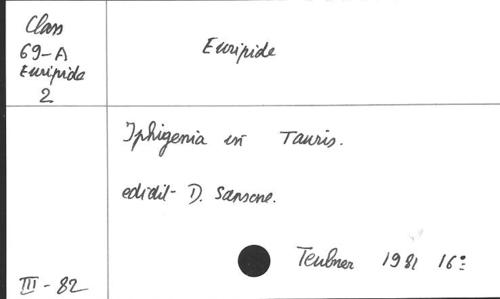 Class
69-A
Euripide
2
Euripide
Iphigenia in Tauris.
edidit D. Sansone.
Teubner 1981 16°
III - 82